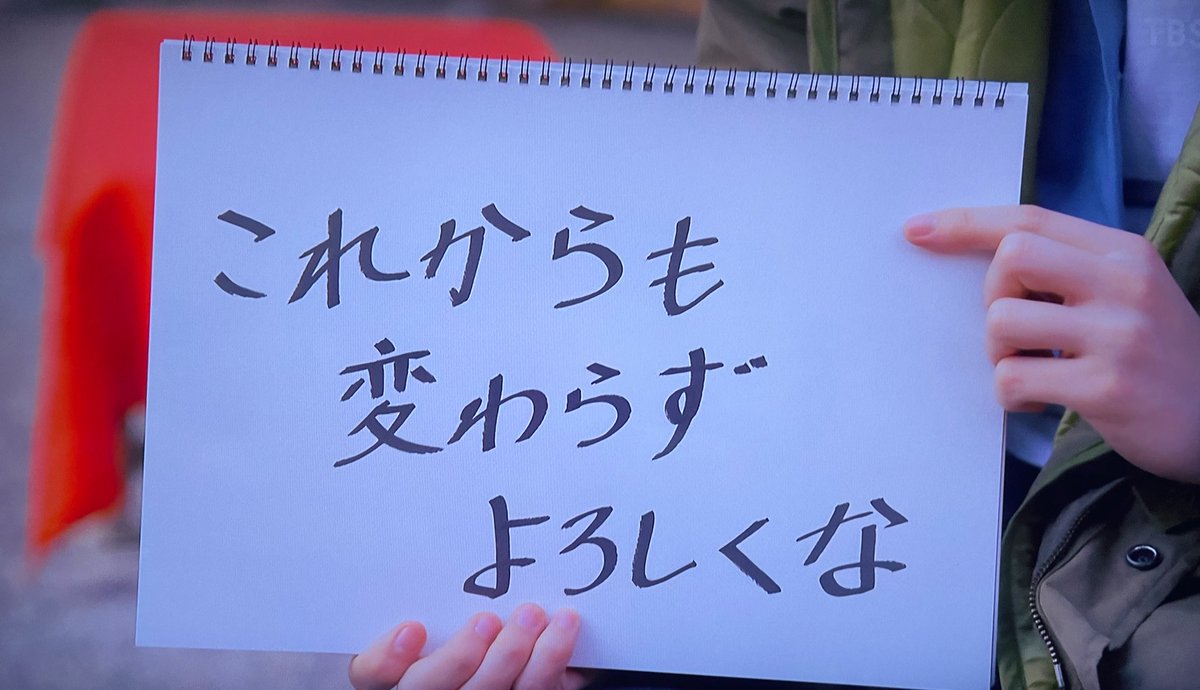 これからも
変わらず
よろしくな
TBS